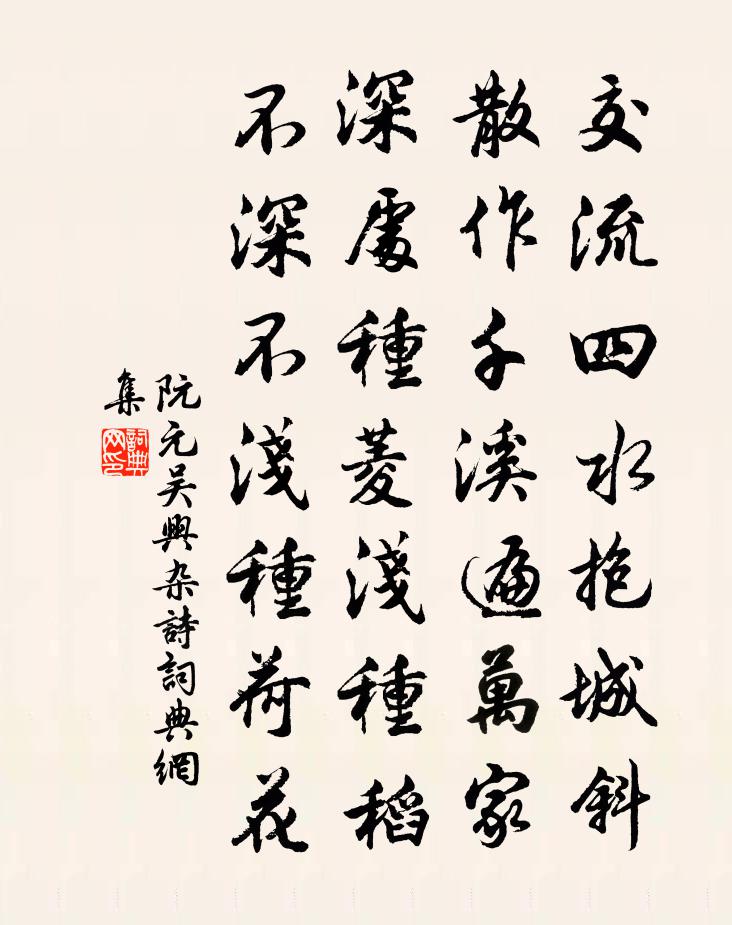 交流四水抱城斜
散作千溪遍萬家
深處種菱淺種稻
不深不淺種荷花
阮元吴興杂詩詞典網
集
詞典
网印